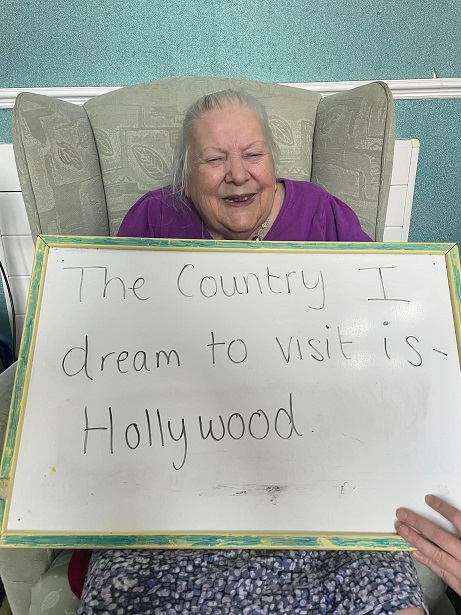 The Country I
dream to visit is-
Hollywood.